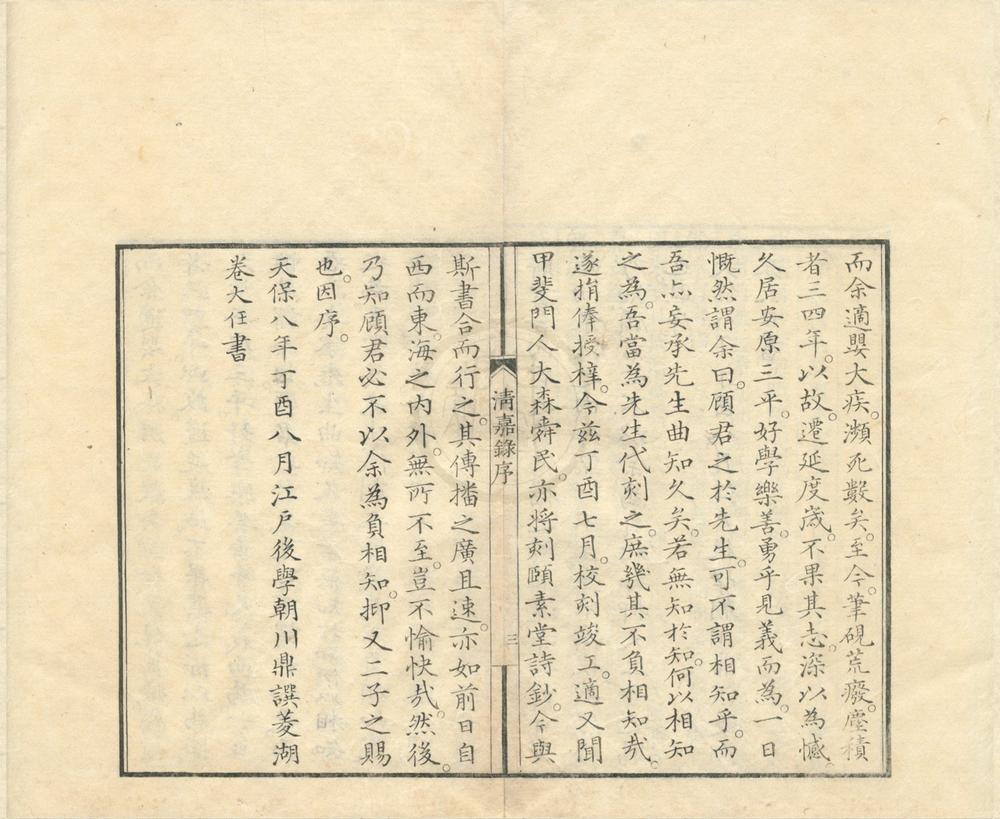 而余適嬰大疾。瀕死數矣。至今。筆硯荒廢。塵積
者三四年。以故。遷延度歳。不果其志。深以為憾。
久居安原三平。好學樂善。勇乎見義而為。一日
慨然謂余曰。顧君之於先生。可不謂相知乎。而
吾亦妄承先生曲知久矣。若無知於知。何以相知
之為。吾當為先生代刻之。庶幾其不負相知哉。
遂捐俸授梓。今茲丁酉七月。校刻竣工。適又聞
甲斐門人大森舜民。亦将刻頤素堂詩鈔。今與
清嘉錄序
三
斯書合而行之。其傳播之廣且速。亦如前日自
西而東。海之内外。無所不至。豈不愉快哉。然後。
乃知顧君必不以余為負相知。抑又二子之賜
也。因序。
天保八年丁酉八月江戸後學朝川鼎譔菱湖
卷大任書